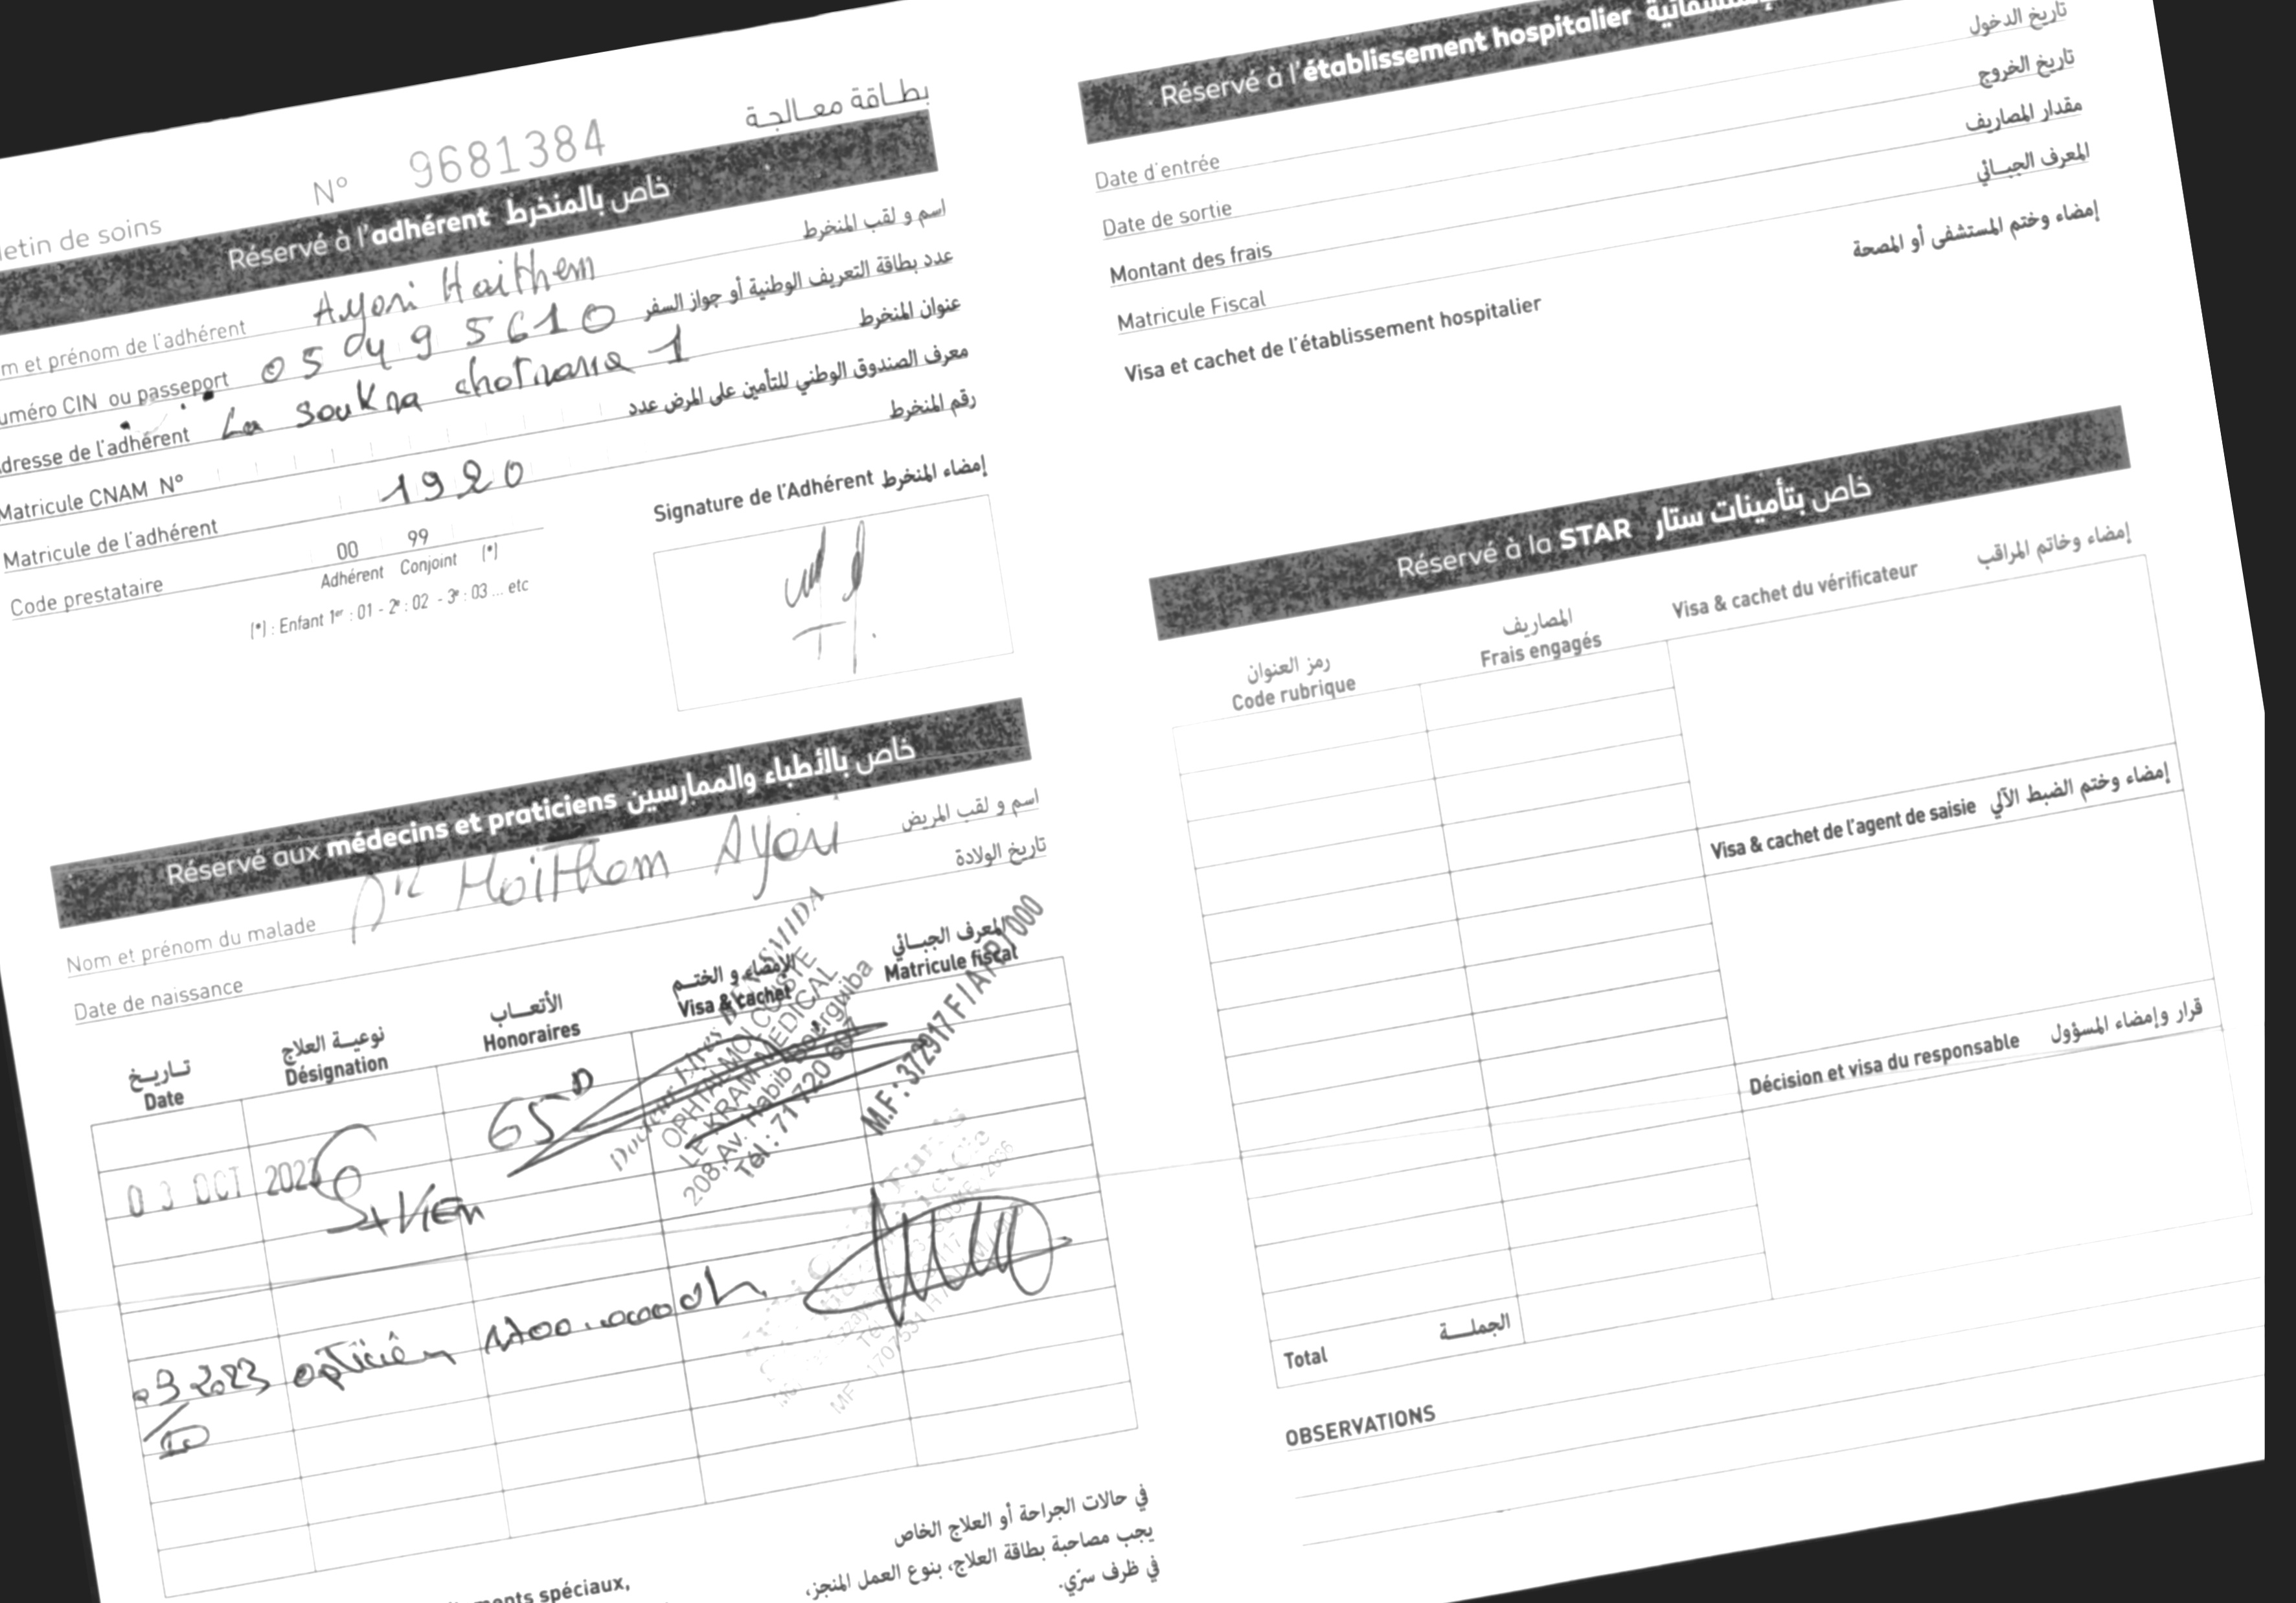 بطـاقة معـالجـة
letin de soins
N° 9681384
Réservé à l'adhérent خاص بالمنخرط
m et prénom de l'adhérent Ayari Haithem اسم و لقب المنخرط
uméro CIN ou passeport 05 04 9 5610 عدد بطاقة التعريف الوطنية أو جواز السفر
dresse de l'adhérent La Soukra chotrana 1 عنوان المنخرط
Matricule CNAM N° معرف الصندوق الوطني للتأمين على المرض عدد
Matricule de l'adhérent 1920 رقم المنخرط
Code prestataire 00 99
Adhérent Conjoint (*)
(*) : Enfant 1er : 01 - 2e : 02 - 3e : 03 ... etc
Signature de l'Adhérent إمضاء المنخرط
Réservé aux médecins et praticiens خاص بالأطباء والممارسين
Nom et prénom du malade Mr Haithem Ayari اسم و لقب المريض
Date de naissance تاريخ الولادة
تـاريـخ نوعيـة العلاج الأتعـــاب الإمضاء و الختـم المعرف الجبـائي
Date Désignation Honoraires Visa & cachet Matricule fiscal
03 OCT 2023 65D
OPHTALMOLOGISTE
LE KRAM MEDICAL
208, Av. Habib Bourguiba
Tél : 71 720 607
M.F : 372917 F / A / P / 000
03 2023 opticien
/10
ments spéciaux,
في حالات الجراحة أو العلاج الخاص
يجب مصاحبة بطاقة العلاج، بنوع العمل المنجز،
في ظرف سرّي.
Réservé à l'établissement hospitalier
Date d'entrée تاريخ الدخول
Date de sortie تاريخ الخروج
Montant des frais مقدار المصاريف
Matricule Fiscal المعرف الجبـائي
Visa et cachet de l'établissement hospitalier إمضاء وختم المستشفى أو المصحة
Réservé à la STAR خاص بتأمينات ستار
رمز العنوان المصاريف إمضاء وخاتم المراقب
Code rubrique Frais engagés Visa & cachet du vérificateur
Visa & cachet de l'agent de saisie إمضاء وختم الضبط الآلي
Décision et visa du responsable قرار وإمضاء المسؤول
Total الجملـــة
OBSERVATIONS